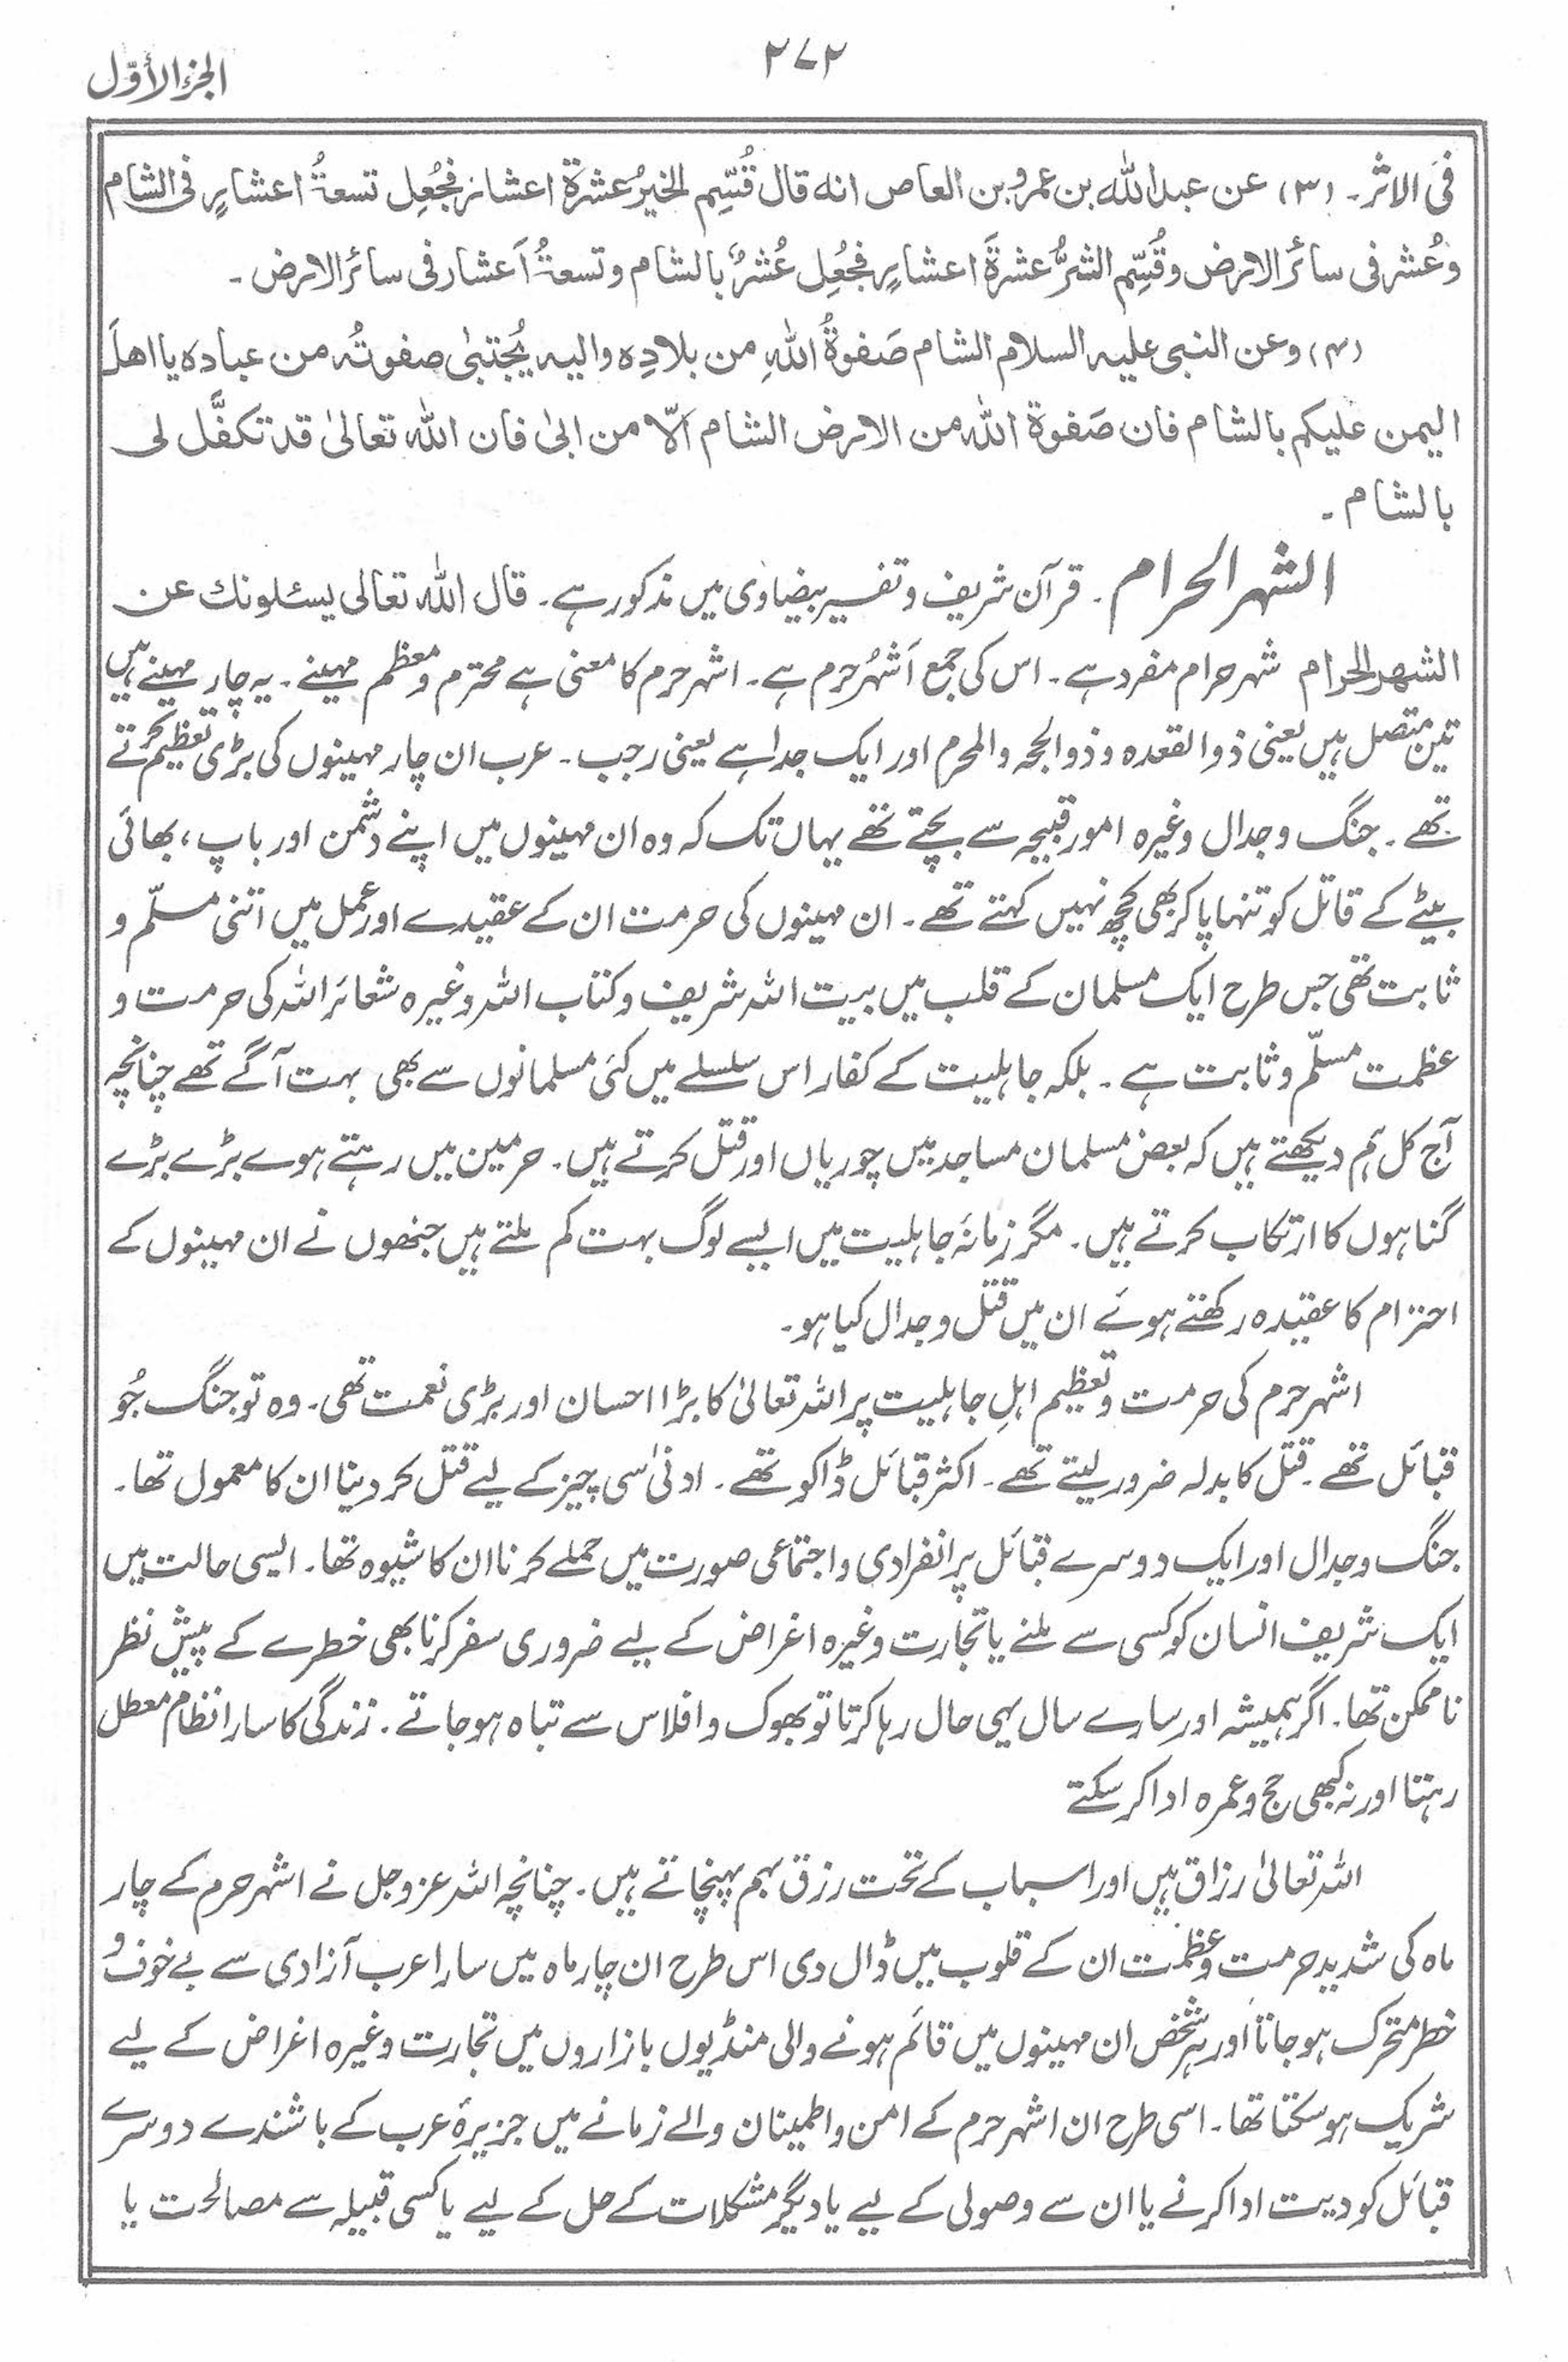 ٢٧٢
الجزء الأوّل
فی الاثر۔ (۳) عن عبد الله بن عمرو بن العاص انه قال قُسِّم الخیرُ عشرة اعشار فجُعِل تسعةُ اعشارٍ فی الشام
وعُشر فی سائر الارض وقُسِّم الشرُّ عشرةَ اعشارٍ فجُعِل عُشرٌ بالشام وتسعةُ اَعشار فی سائر الارض۔
(۴) وعن النبی علیه السلام الشام صَفوةُ اللهِ من بلادِه والیه یُجتبیٰ صفوتُه من عباده یا اهلَ
الیمن علیکم بالشام فان صَفوة الله من الارض الشام اَلّا من ابیٰ فان الله تعالیٰ قد تکفَّل لی
بالشام۔
الشهر الحرام۔ قرآن شریف وتفسیر بیضاوی میں مذکور ہے۔ قال الله تعالی یسئلونك عن
الشهر الحرام شہر حرام مفرد ہے۔ اس کی جمع اَشہُر حرم ہے۔ اشہر حرم کا معنی ہے محترم ومعظم مہینے۔ یہ چار مہینے ہیں
تین متصل ہیں یعنی ذوالقعدہ وذوالحجہ والمحرم اور ایک جدا ہے یعنی رجب۔ عرب ان چار مہینوں کی بڑی تعظیم کرتے
تھے۔ جنگ وجدال وغیرہ امور قبیحہ سے بچتے تھے یہاں تک کہ وہ ان مہینوں میں اپنے دشمن اور باپ، بھائی
بیٹے کے قاتل کو تنہا پا کر بھی کچھ نہیں کہتے تھے۔ ان مہینوں کی حرمت ان کے عقیدے اور عمل میں اتنی مسلّم و
ثابت تھی جس طرح ایک مسلمان کے قلب میں بیت اللہ شریف وکتاب اللہ وغیرہ شعائر اللہ کی حرمت و
عظمت مسلّم وثابت ہے۔ بلکہ جاہلیت کے کفار اس سلسلے میں کئی مسلمانوں سے بھی بہت آگے تھے چنانچہ
آج کل ہم دیکھتے ہیں کہ بعض مسلمان مساجد میں چوریاں اور قتل کرتے ہیں۔ حرمین میں رہتے ہوے بڑے بڑے
گناہوں کا ارتکاب کرتے ہیں۔ مگر زمانۂ جاہلیت میں ایسے لوگ بہت کم ملتے ہیں جنھوں نے ان مہینوں کے
احترام کا عقیدہ رکھتے ہوئے ان میں قتل وجدال کیا ہو۔
اشہر حرم کی حرمت وتعظیم اہلِ جاہلیت پر اللہ تعالیٰ کا بڑا احسان اور بڑی نعمت تھی۔ وہ تو جنگ جُو
قبائل تھے۔ قتل کا بدلہ ضرور لیتے تھے۔ اکثر قبائل ڈاکو تھے۔ ادنیٰ سی چیز کے لیے قتل کر دینا ان کا معمول تھا۔
جنگ وجدال اور ایک دوسرے قبائل پر انفرادی واجتماعی صورت میں حملے کرنا ان کا شیوہ تھا۔ ایسی حالت میں
ایک شریف انسان کو کسی سے ملنے یا تجارت وغیرہ اغراض کے لیے ضروری سفر کرنا بھی خطرے کے پیش نظر
ناممکن تھا۔ اگر ہمیشہ اور سارے سال یہی حال رہا کرتا تو بھوک وافلاس سے تباہ ہو جاتے۔ زندگی کا سارا نظام معطل
رہتا اور نہ کبھی حج وعمرہ ادا کر سکتے
اللہ تعالیٰ رزاق ہیں اور اسباب کے تحت رزق بہم پہنچاتے ہیں۔ چنانچہ اللہ عزوجل نے اشہر حرم کے چار
ماہ کی شدید حرمت وعظمت ان کے قلوب میں ڈال دی اس طرح ان چار ماہ میں سارا عرب آزادی سے بے خوف و
خطر متحرک ہو جاتا اور ہر شخص ان مہینوں میں قائم ہونے والی منڈیوں بازاروں میں تجارت وغیرہ اغراض کے لیے
شریک ہو سکتا تھا۔ اسی طرح ان اشہر حرم کے امن واطمینان والے زمانے میں جزیرۂ عرب کے باشندے دوسرے
قبائل کو دیت ادا کرنے یا ان سے وصولی کے لیے یا دیگر مشکلات کے حل کے لیے یا کسی قبیلہ سے مصالحت یا